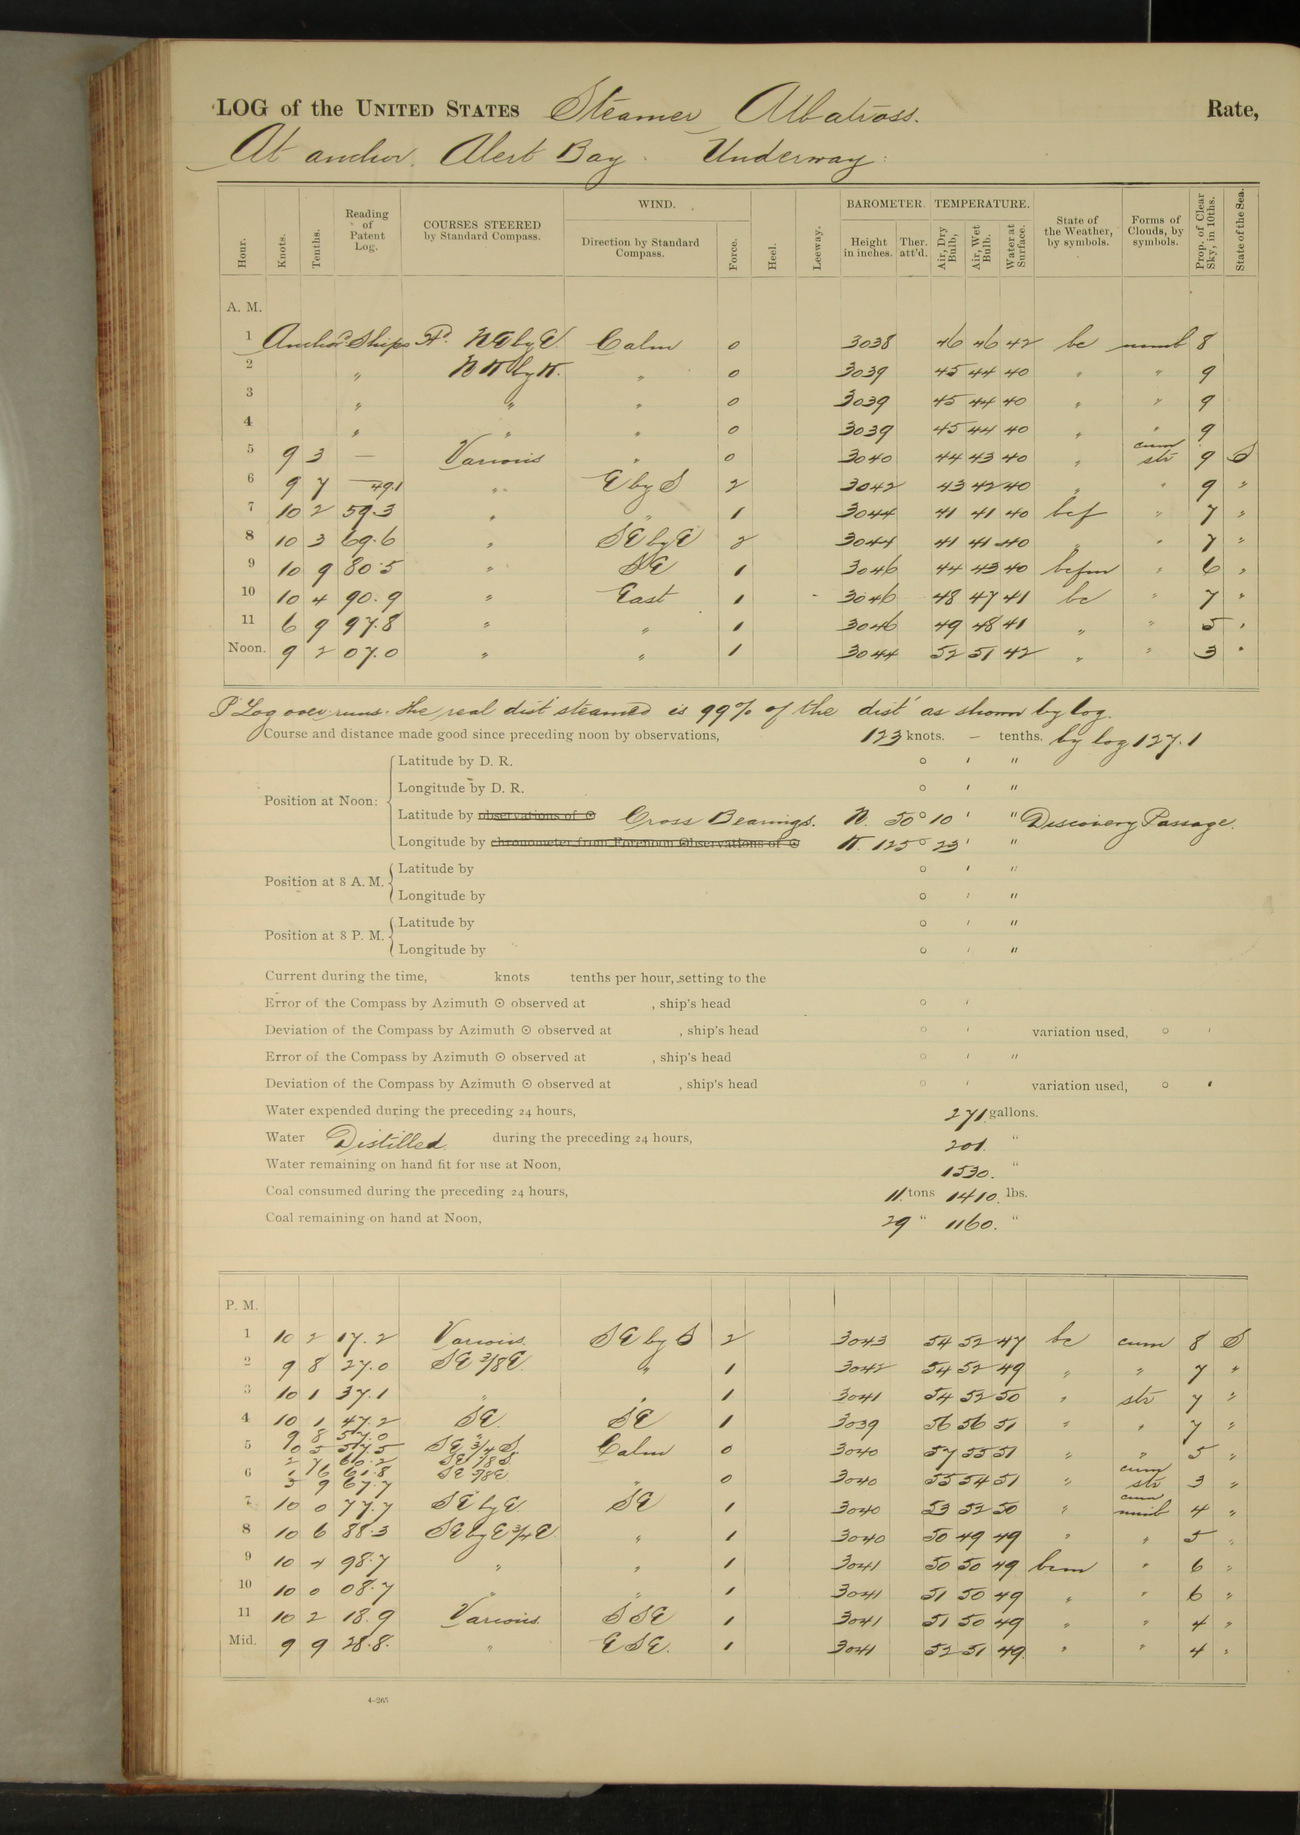 LOG of the UNITED STATES Steamer Albatross. Rate,
At anchor. Alert Bay. Underway.
Hour. Knots. Tenths. Reading of Patent Log. COURSES STEERED by Standard Compass. WIND. Direction by Standard Compass. Force. Heel. Leeway. BAROMETER. Height in inches. Ther. att'd. TEMPERATURE. Air, Dry Bulb, Air, Wet Bulb. Water at Surface. State of the Weather, by symbols. Forms of Clouds, by symbols. Prop. of Clear Sky, in 10ths. State of the Sea.
A. M.
1 Anchor'd Ships H'd. NE by E Calm 0 3038 46 46 42 bc nimb 8
2 " NW by W. " 0 3039 45 44 40 " " 9
3 " " " 0 3039 45 44 40 " " 9
4 " " " 0 3039 45 44 40 " " 9
5 9 3 — Various " 0 3040 44 43 40 " cum str 9 S
6 9 7 49.1 " E by S 2 3042 43 42 40 " " 9 "
7 10 2 59.3 " " 1 3044 41 41 40 bcf " 7 "
8 10 3 69.6 " SE by E 2 3044 41 41 40 " " 7 "
9 10 9 80.5 " SE 1 3046 44 43 40 bcfm " 6 "
10 10 4 90.9 " East 1 3046 48 47 41 bc " 7 "
11 6 9 97.8 " " 1 3046 49 48 41 " " 5 "
Noon. 9 2 07.0 " " 1 3044 52 51 42 " " 3 "
P Log over-runs. the real dist steamed is 99% of the dist' as shown by log.
Course and distance made good since preceding noon by observations, 123 knots. — tenths. by log 127.1
Position at Noon: Latitude by D. R. ° ' "
Longitude by D. R. ° ' "
Latitude by observations of ☉ Cross Bearings. N. 50° 10 ' " Discovery Passage.
Longitude by chronometer from Forenoon Observations of ☉ W. 125° 23 ' "
Position at 8 A. M. Latitude by ° ' "
Longitude by ° ' "
Position at 8 P. M. Latitude by ° ' "
Longitude by ° ' "
Current during the time, knots tenths per hour, setting to the
Error of the Compass by Azimuth ☉ observed at , ship's head ° '
Deviation of the Compass by Azimuth ☉ observed at , ship's head ° ' variation used, ° '
Error of the Compass by Azimuth ☉ observed at , ship's head ° ' "
Deviation of the Compass by Azimuth ☉ observed at , ship's head ° ' variation used, ° '
Water expended during the preceding 24 hours, 271 gallons.
Water Distilled during the preceding 24 hours, 201. "
Water remaining on hand fit for use at Noon, 1530. "
Coal consumed during the preceding 24 hours, 11. tons 1410. lbs.
Coal remaining on hand at Noon, 29 " 1160. "
P. M.
1 10 2 17.2 Various SE by S 2 3043 54 52 47 bc cum 8 S
2 9 8 27.0 SE 3/8 E " 1 3042 54 52 49 " " 7 "
3 10 1 37.1 " " 1 3041 54 52 50 " str 7 "
4 10 1 47.2 SE. SE 1 3039 56 56 51 " " 7 "
9 8 57.0 "
5 0 5 57.5 SE 3/4 S. Calm 0 3040 57 55 51 " " 5 "
2 7 60.2 SE 7/8 S
6 1 6 61.8 SE 5/8 E " 0 3040 55 54 51 " cum str 3 "
5 9 67.7 "
7 10 0 77.7 SE by E SE 1 3040 53 52 50 " cum nimb 4 "
8 10 6 88.3 SE by E 3/4 E " 1 3040 50 49 49 " " 5 "
9 10 4 98.7 " " 1 3041 50 50 49 bcm " 6 "
10 10 0 08.7 " " 1 3041 51 50 49 " " 6 "
11 10 2 18.9 Various SSE 1 3041 51 50 49 " " 4 "
Mid. 9 9 28.8. " ESE. 1 3041 52 51 49. " " 4 "
4-265